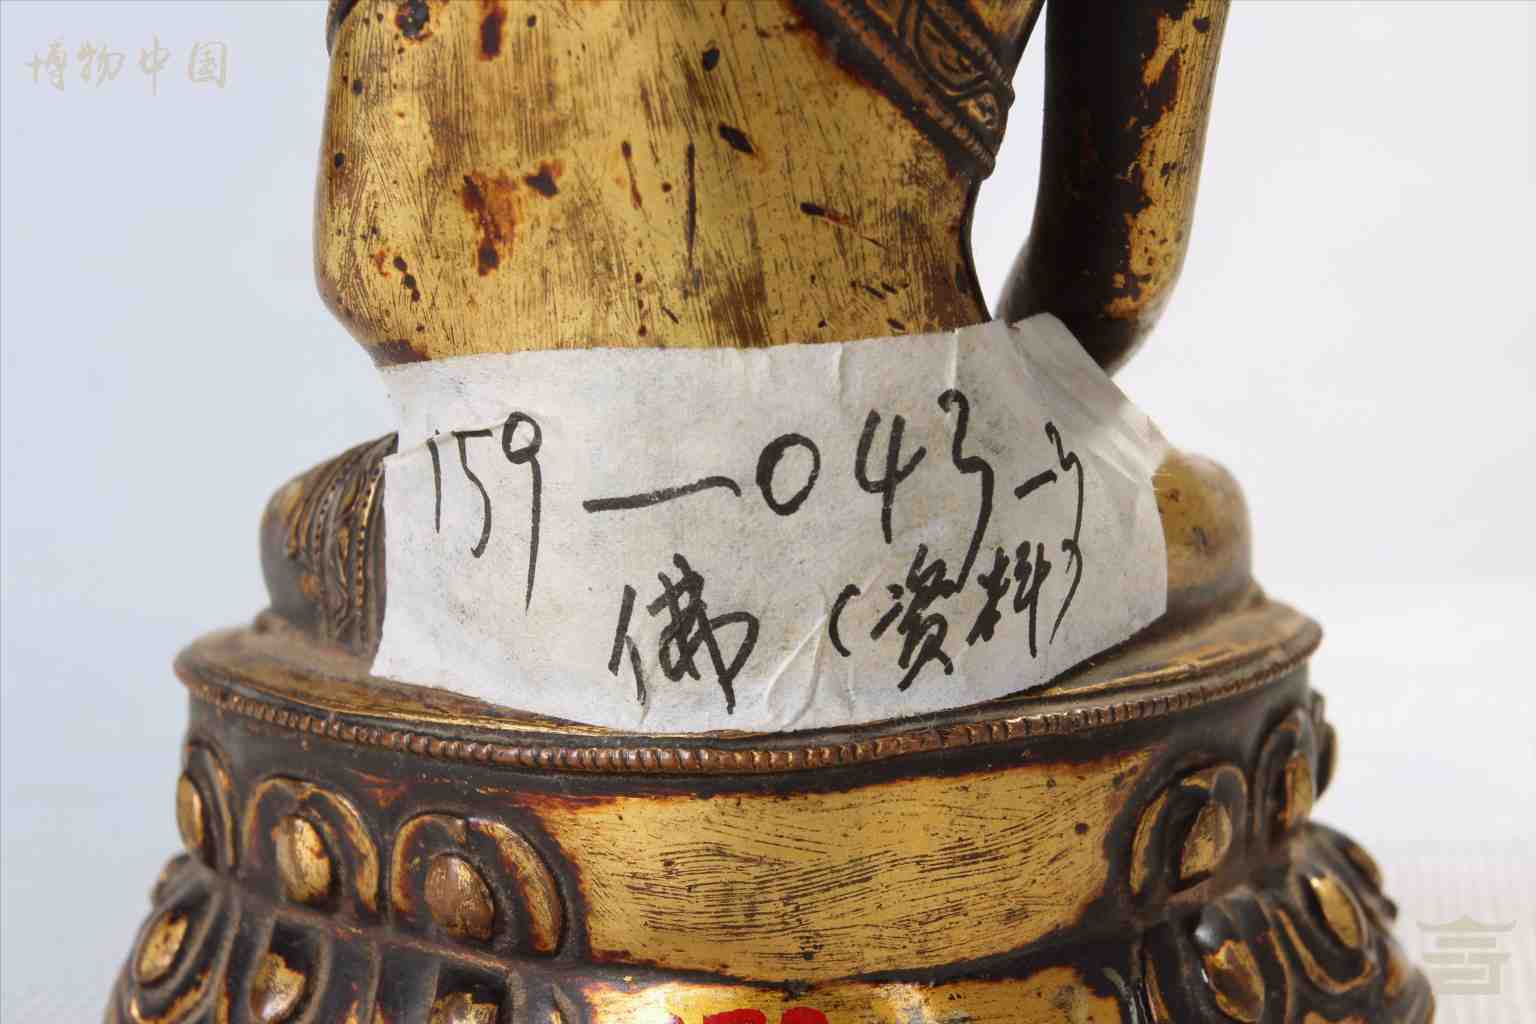 博物中国
159—043-3
佛(资料)